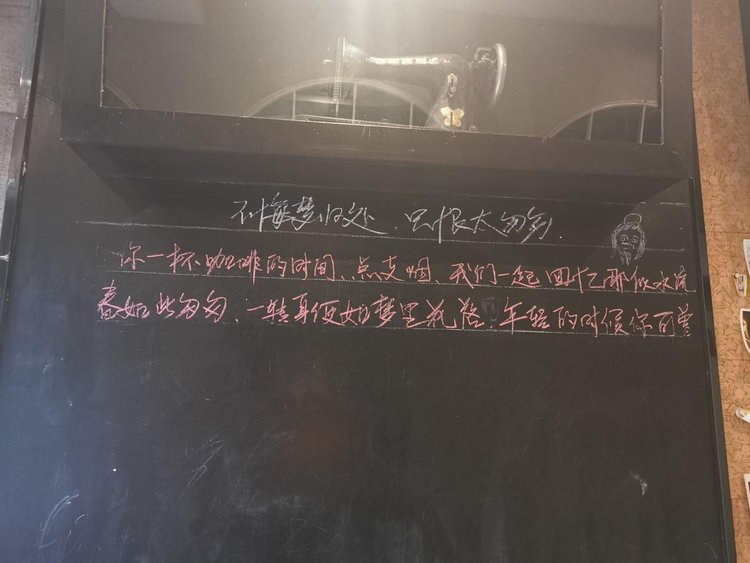 不悔梦归处，只恨太匆匆．
你一杯咖啡的时间、点支烟、我们一起回忆那似水流
春如此匆匆．一转身便如梦里花落．年轻的时候你可曾